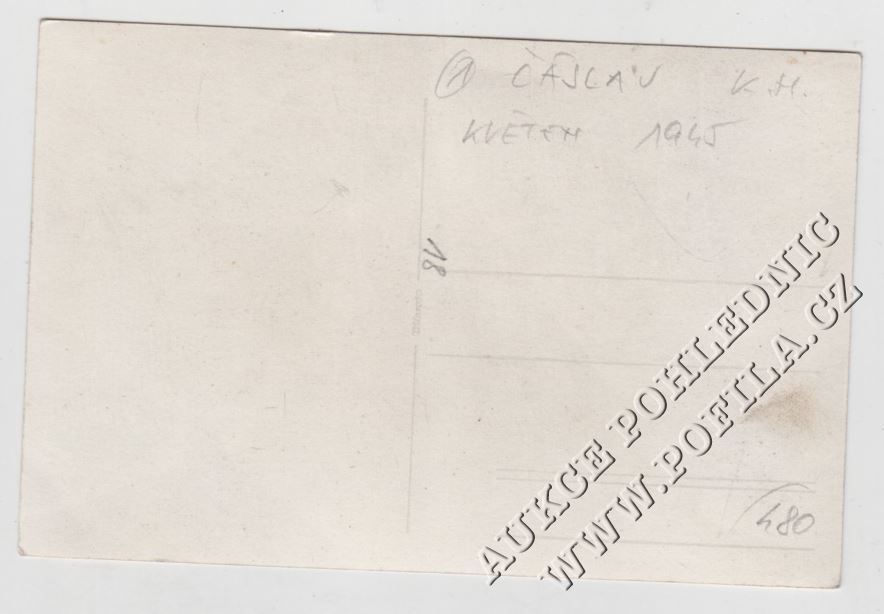 ① ČÁSLAV K.H.
KVĚTEN 1945
18
480
AUKCE POHLEDNIC
WWW.POFILA.CZ